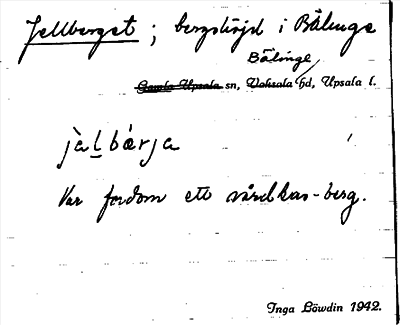 Jellberget ; bergshöjd i Bälinge
Bälinge
Gamla Upsala sn, Vaksala hd, Upsala l.
jàlbærja
Var fordom ett vårdkas-berg.
Inga Löwdin 1942.